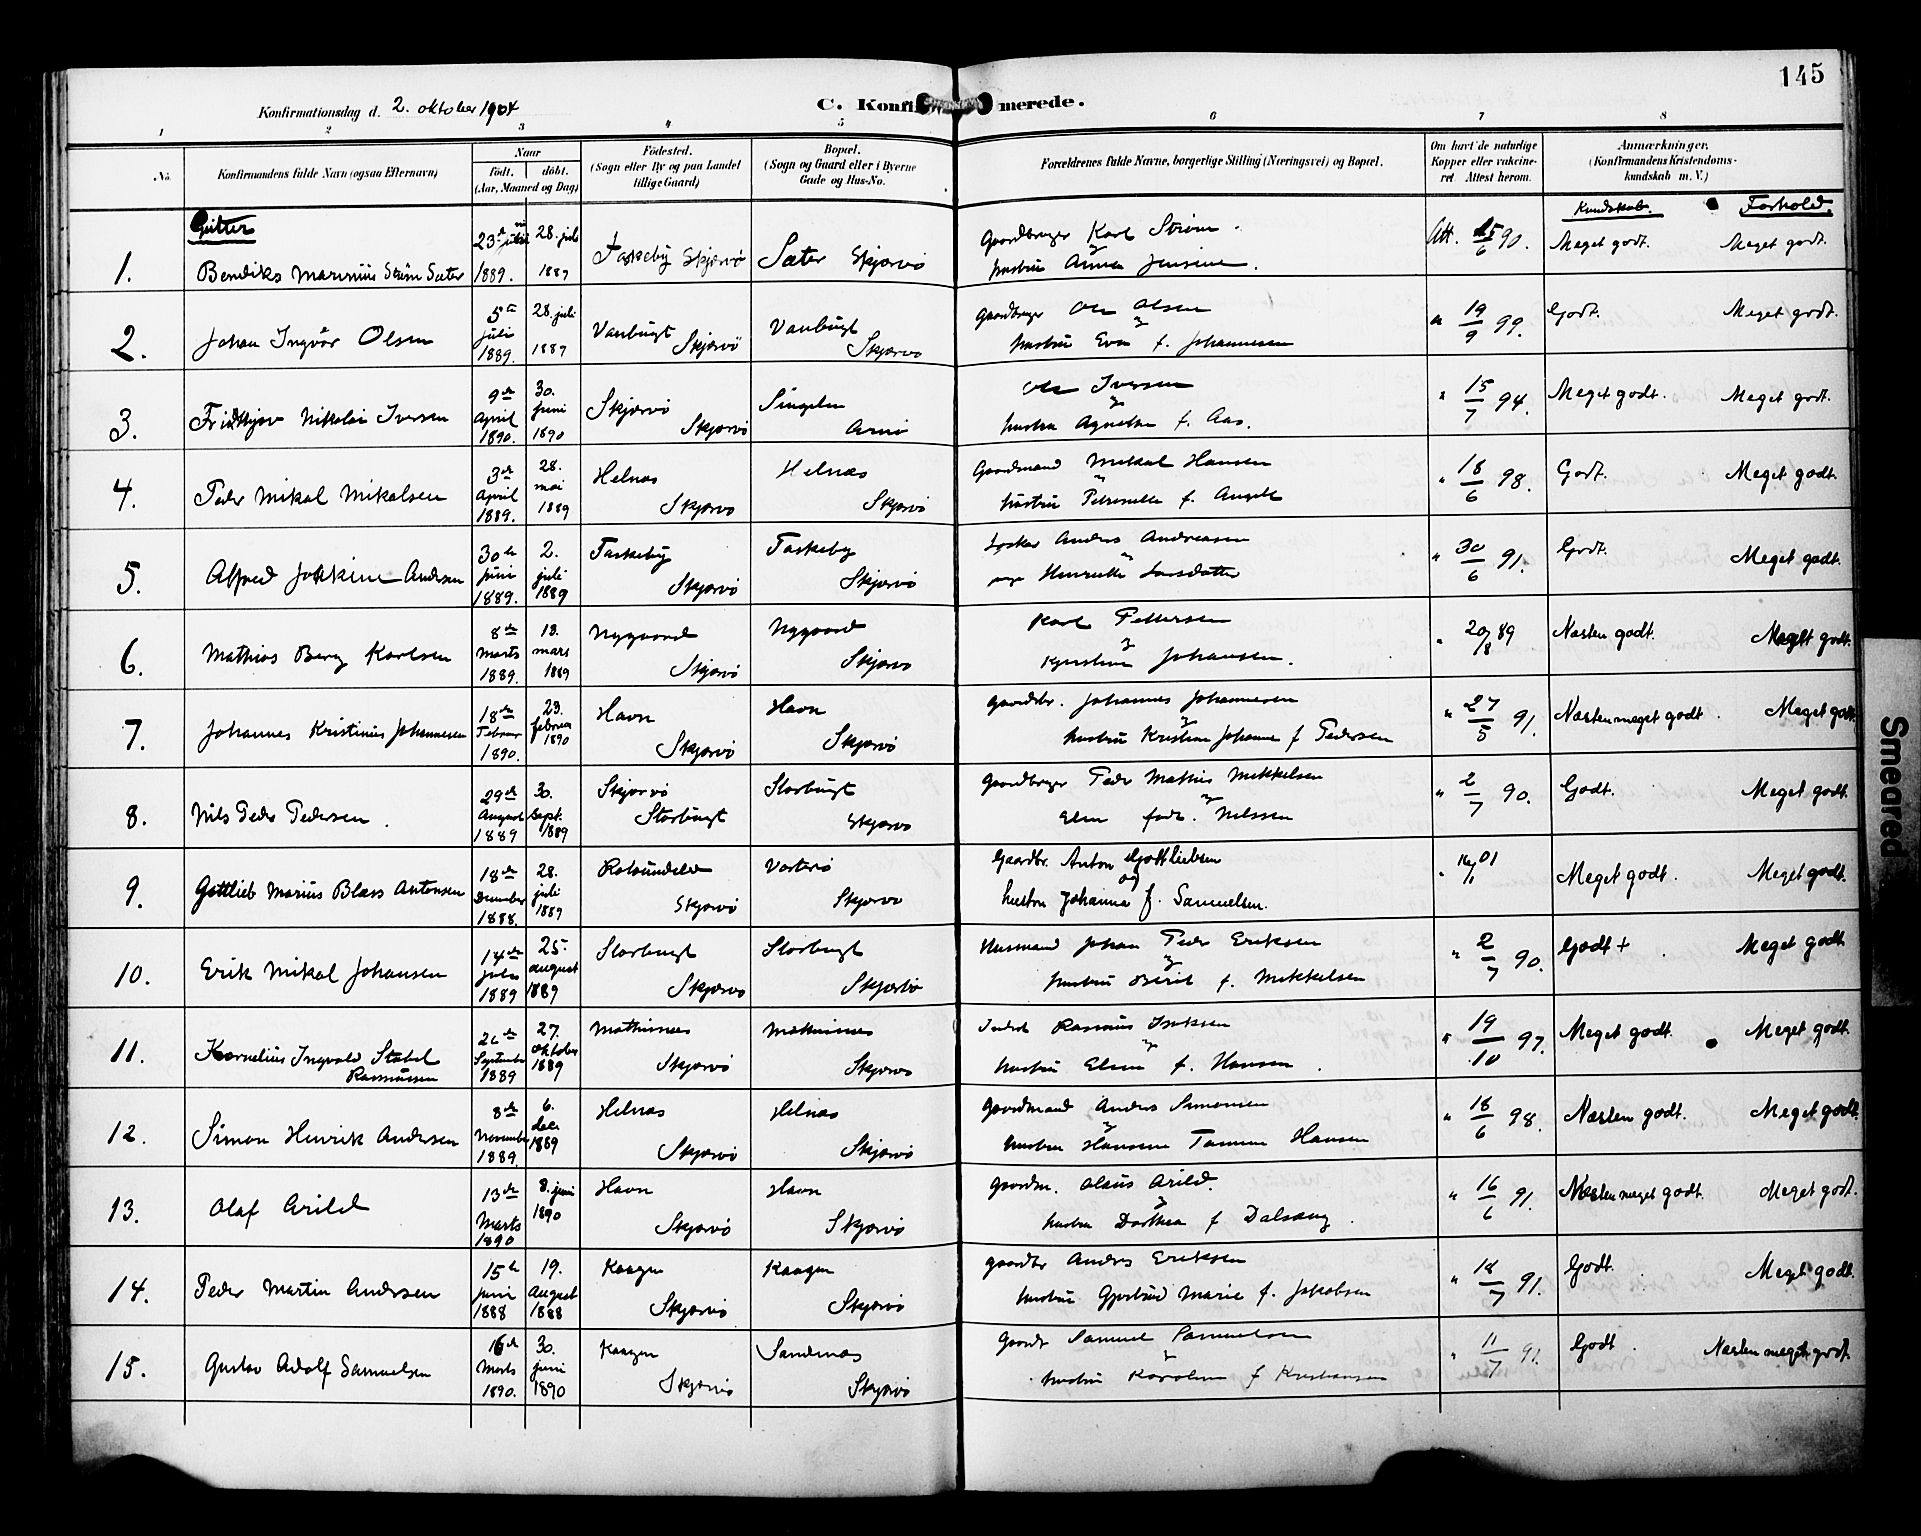 145
Konfirmationsdag d. 2. oktober 1904
C. Konfirmerede.
1 2 3 4 5 6 7 8
No. Konfirmandens fulde Navn (ogsaa Efternavn) Naar født. døbt. (Aar, Maaned og Dag) Fødested. (Sogn eller By og paa Landet tillige Gaard) Bopæl. (Sogn og Gaard eller i Byerne Gade og Hus-No. Forældrenes fulde Navne, borgerlige Stilling (Næringsvei) og Bopæl. Om havt de naturlige Kopper eller vakcineret Attest herom. Anmærkninger. (Konfirmandens Kristendomskundskab m. V.)
Gutter Kundskab. Forhold.
1. 23de juni 28. juli Taskeby Skjærvö Sæter Skjærvö Gaardbruger Karl Ström Att. 25/6 90. Meget godt. Meget godt.
Bendiks Marinius Ström Sæter 1889. 1889 og hustru Anna Jensine.
2. Johan Ingvar Olsen 5te juli 1889. 28. juli 1889 Vanbugt Skjærvö Vanbugt Skjærvö Gaardbruger Ole Olsen
og hustru Eva f. Johannesen " 19/9 99. Godt. Meget godt.
3. Fridthjov Nikolai Iversen 9de April 1890. 30. juni 1890 Skjærvö Skjærvö Singelen Arnö Ole Iversen
og hustru Agnethe f. Aas. " 15/7 94. Meget godt. Meget godt.
4. Peder Mikal Mikalsen 3de April 1889. 28. mai 1889 Helnæs Skjærvö Helnæs Skjærvö Gaardmand Mikal Hansen
og hustru Petronelle f. Angell " 18/6 98. Godt. Meget godt.
5. Alfred Jokkim Andersen 30te juni 1889. 2. juli 1889 Taskeby Skjærvö Taskeby Skjærvö Anders Andreasen
og Henriette Larsdatter " 30/6 91. Godt. Meget godt.
6. Mathias Berg Karlsen 8de Marts 1889. 13. mars 1889 Nygaard Skjærvö Nygaard Skjærvö Karl Pettersen
og Johansen. " 20/8 89 Næsten godt. Meget godt.
7. Johannes Kristinus Johannesen 18de Februar 1890. 23. februar 1890 Havn Skjærvö Havn Skjærvö Gaardbr. Johannes Johannesen
og hustru Kristine Johanne f Pedersen " 27/5 91. Næsten meget godt. Meget godt.
8. Nils Peder Pedersen. 29de August 1889 30. Sept. 1889 Skjærvö Storbugt Storbugt Skjærvö Gaardbruger Peder Mathis Mikkelsen
og Elen föd. Nilssen " 2/7 90. Godt. Meget godt.
9. Gottlieb Marius Blæss Antonsen 18de December 1888. 28. juli 1889 Rotsundelv Skjærvö Vorterö Skjærvö Gaardbr. Anton Gottliebsen
og hustru Johanna f. Samuelsen. " 16/11 01 Meget godt. Meget godt.
10. Erik Mikal Johansen 14de juli 1889 25. august 1889 Storbugt Skjærvö Storbugt Skjærvö Husmand Johan Peder Eriksen
og hustru Berit f. Mikkelsen " 2/7 90. Godt + Meget godt.
11. Kornelius Ingvald Stabel Rasmussen September 1889 27. oktober 1889 Mathisnes Skjærvö Mathisnes Skjærvö Inderst Rasmus Isaksen
og hustru Elen f. Hansen. " 19/10 97. Meget godt. Meget godt.
12. Simon Henrik Andersen 8de November 1889. 6. dec 1889 Helnæs Skjærvö Helnæs Skjærvö Gaardmand Anders Simonsen
og hustru Hansine Tomine Hansen " 18/6 98. Næsten godt. Meget godt.
13. Olaf Arild 13de Marts 1890 8. juni 1890 Havn Skjærvö Havn Skjærvö Gaardm. Olaus Arild.
og hustru Dorthea f Dalsæng. " 16/6 91. Næsten meget godt. Meget godt.
14. Peder Martin Andersen 15de juni 1888 19. August 1888 Kaagen Skjærvö Kaagen Skjærvö Gaardbr Anders Eriksen
hustru Gjertrud Marie f. Jakobsen " 18/7 91. Godt. Meget godt.
15. Gustav Adolf Samuelsen 16de Marts 1890. 30. juni 1890 Kaagen Skjærvö Sandnæs Skjærvö Gaardbr Samuel Samuelsen
og hustru Karoline f Kristiansen " 11/7 91. Godt. Næsten meget godt.
Smeared